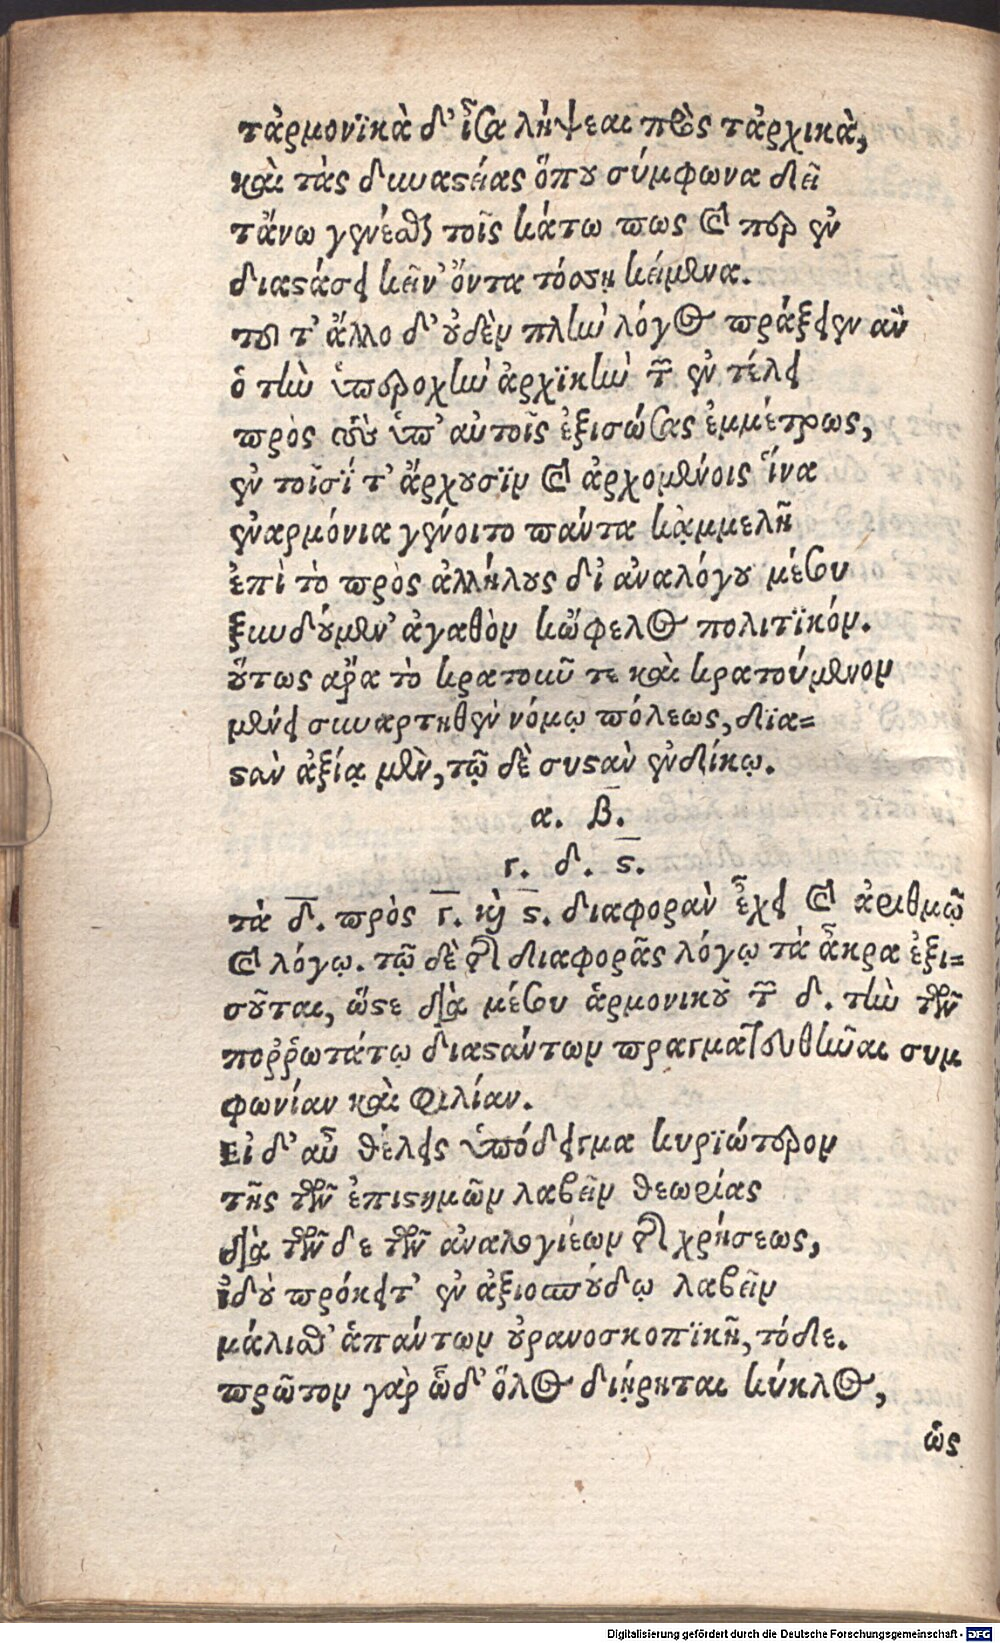 τἀρμονϊκὰ δ' ἶσα λήψεαι πρὸς τἀρχικὰ,
καὶ τὰς δυναστείας ὅπου σύμφωνα δεῖ
τἄνω γενέσθαι τοῖς κάτω πως καὶ περ ἐν
διαστάσει κεῖν' ὄντα τόσση κείμενα.
τουτ' ἄλλο δ' οὐδὲν πλὴν λόγος πράξειεν ἂν
ὁ τὴν ὑπεροχὴν ἀρχϊκὴν τῶν ἐν τέλει
πρὸς τοὺς ὑπ' αὐτοῖς ἐξισώσας ἐμμέτρως,
ἐν τοῖσΐ τ' ἄρχουσϊν καὶ ἀρχομένοις ἵνα
ἐναρμόνια γένοιτο πάντα κᾀμμελῆ
ἐπὶ τὸ πρὸς ἀλλήλους δι' ἀναλόγου μέσου
ξυνδούμεν' ἀγαθὸν κὤφελος πολιτϊκόν.
οὕτως ἄρα τὸ κρατοῦν τε καὶ κρατούμενον
μένει συναρτηθὲν νόμῳ πόλεως, δϊα=
στὰν ἀξίᾳ μὲν, τῷ δὲ συστὰν ἐνδίκῳ.
α. β.
γ. δ. ς.
τὰ δ. πρὸς γ. καὶ ς. διαφορὰν ἔχει καὶ ἀριθμῷ
καὶ λόγῳ. τῷ δὲ τῆς διαφορᾶς λόγῳ τὰ ἄκρα ἐξι=
σοῦται, ὥστε διὰ μέσου ἁρμονικοῦ τοῦ δ. τὴν τῶν
πορῤωτάτῳ διαστάντων πραγματευθῆναι συμ
φωνίαν καὶ φιλίαν.
Εἰ δ' αὖ θέλεις ὑπόδειγμα κυρϊώτερον
τῆς τῶν ἐπιστημῶν λαβεῖν θεωρίας
διὰ τῶν δε τῶν ἀναλογιέων τῆς χρήσεως,
ἰδοὺ πρόκειτ' ἐν ἀξιοσπούδῳ λαβεῖν
μάλισθ' ἁπάντων οὐρανοσκοπϊκῇ, τόδε.
πρῶτον γὰρ ὧδ' ὅλος διῄρηται κύκλος,
ὡς
Digitalisierung gefördert durch die Deutsche Forschungsgemeinschaft - DFG